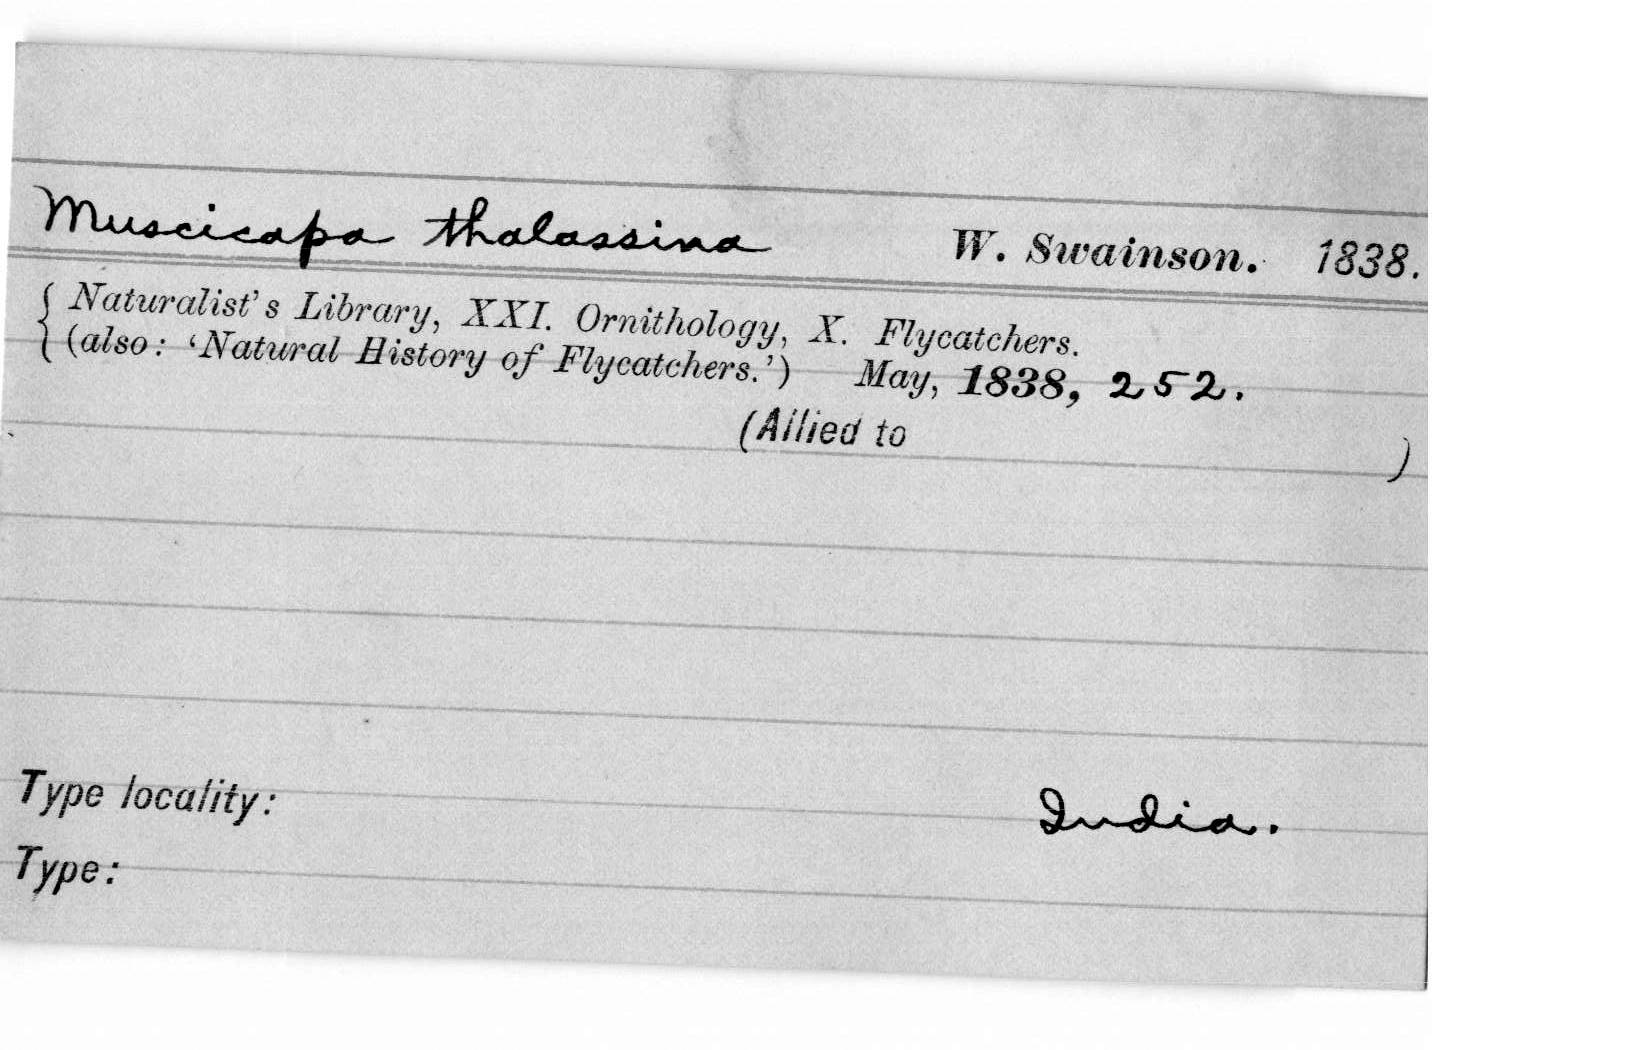 Muscicapa thalassina W. Swainson. 1838.
Naturalist's Library, XXI. Ornithology, X. Flycatchers.
(also: 'Natural History of Flycatchers.') May, 1838, 252.
(Allied to )
Type locality: India.
Type: